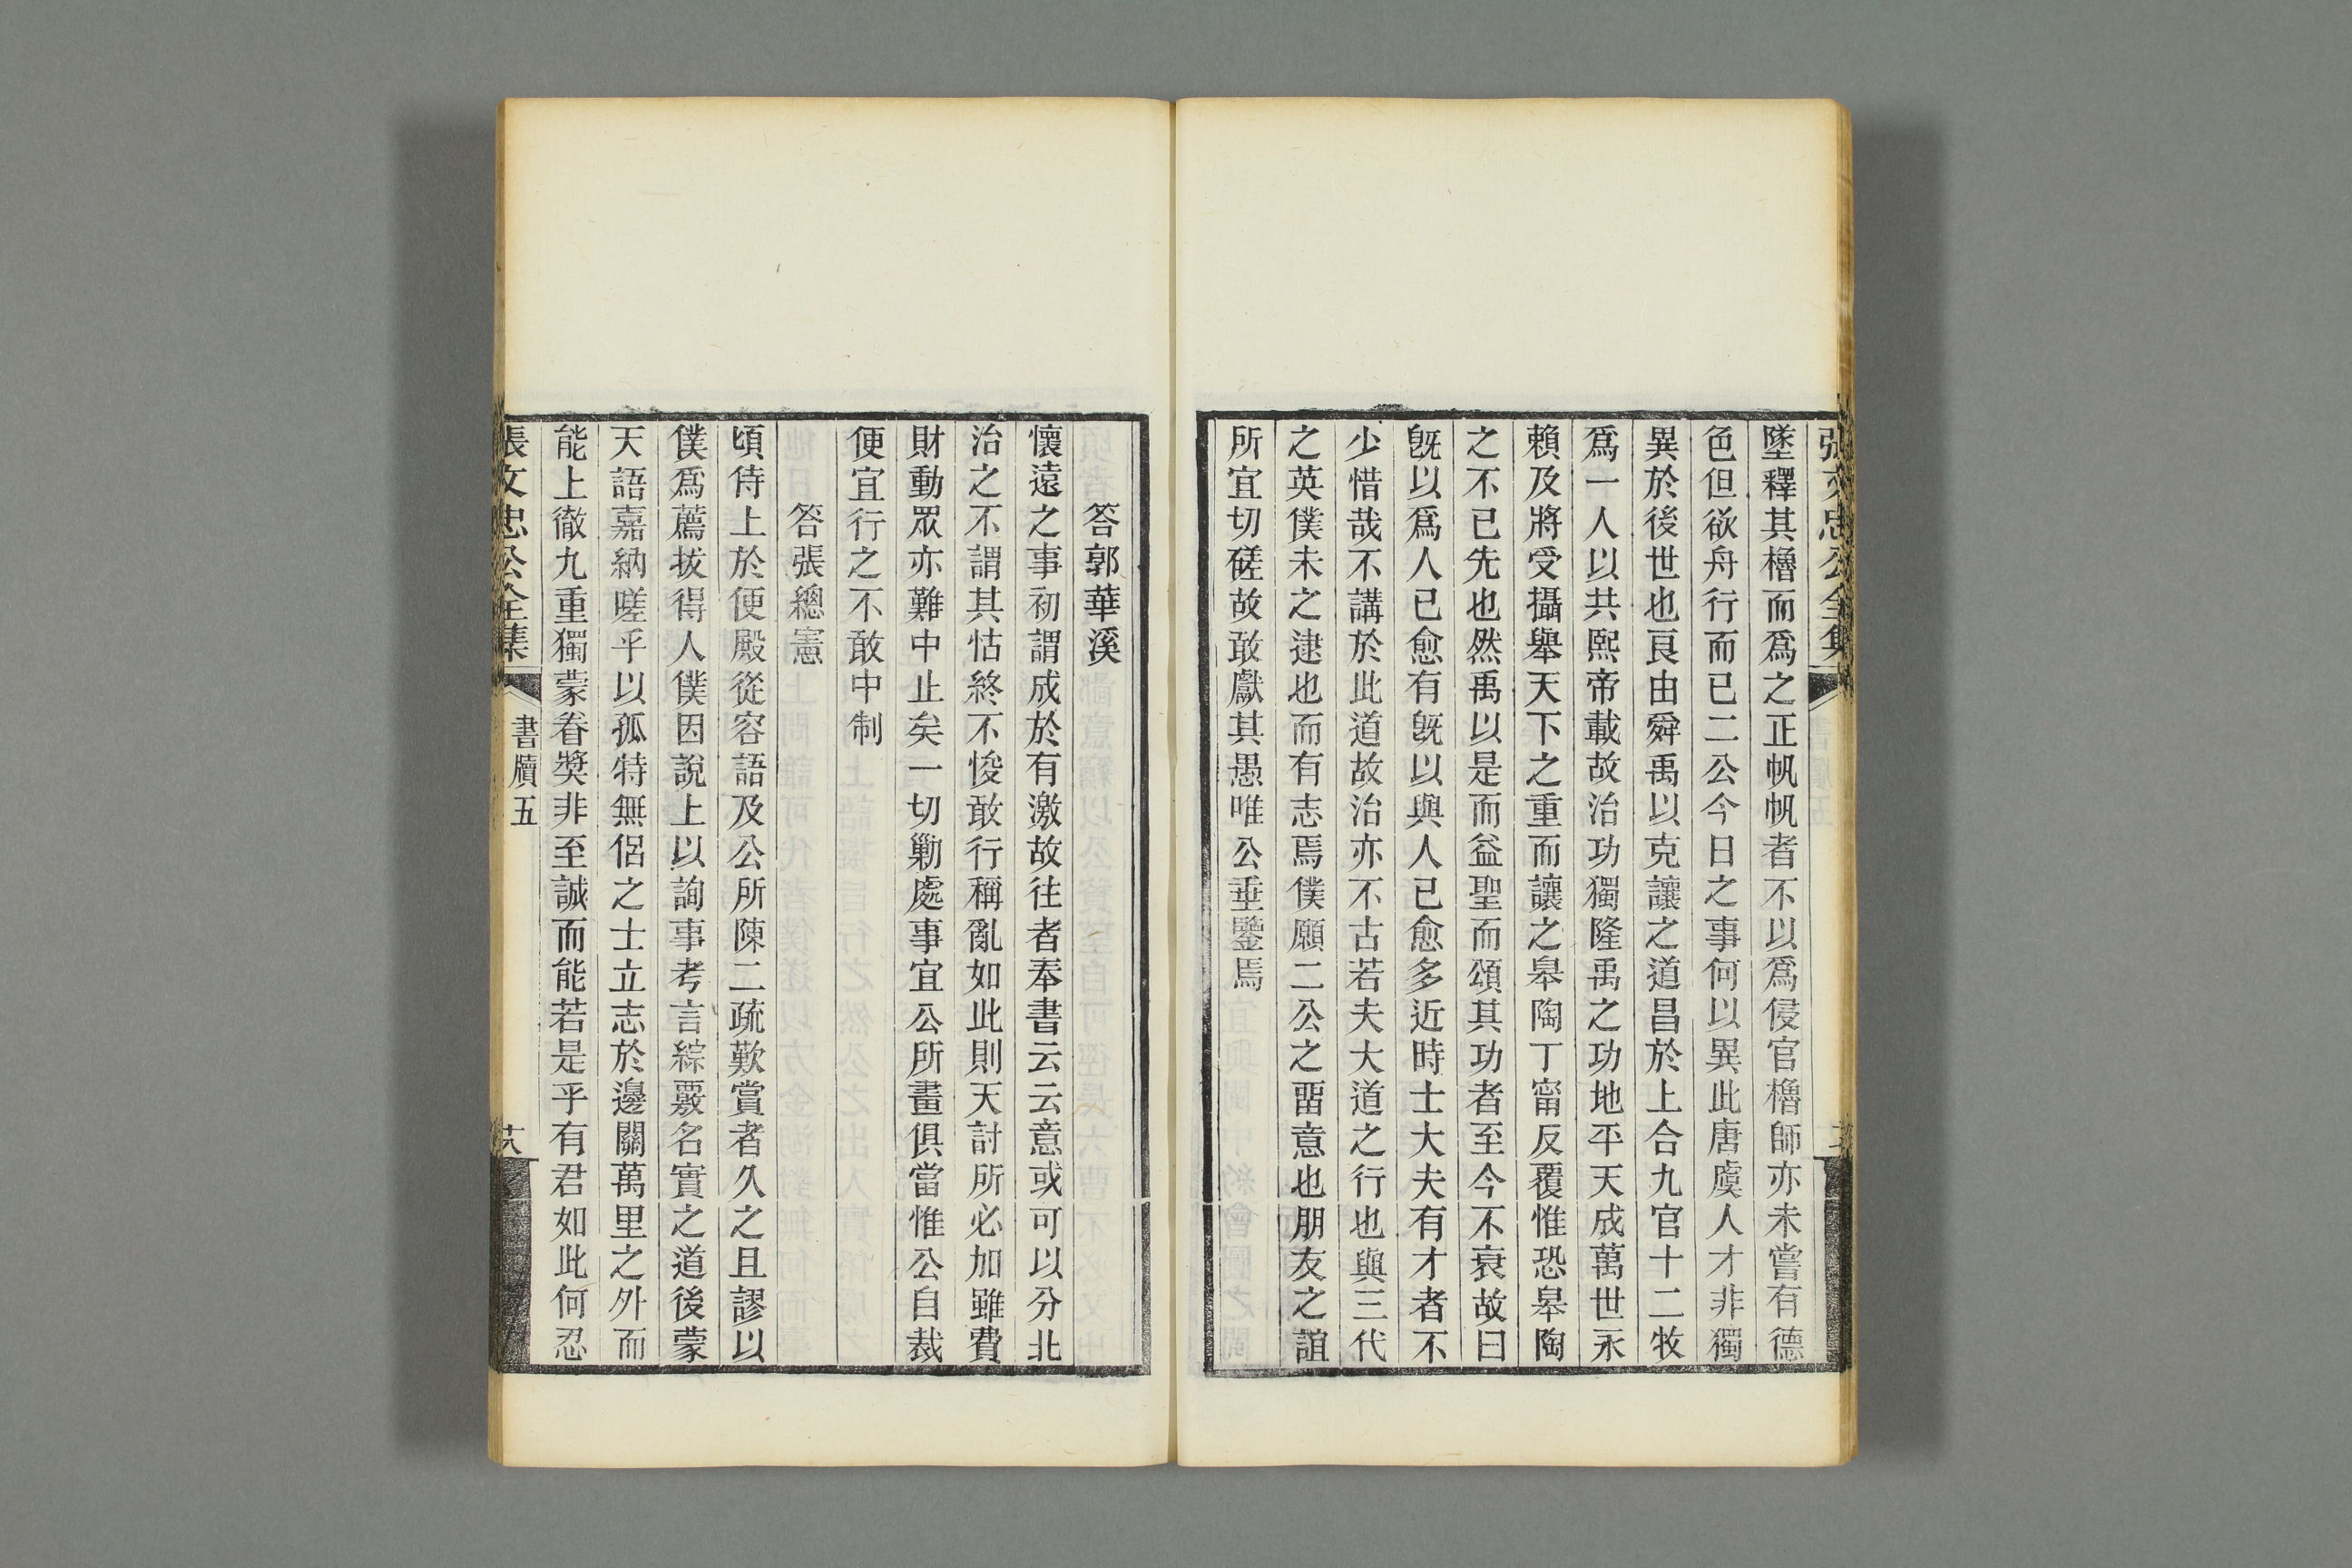 張文忠公全集
墜釋其櫓而爲之正帆帆者不以爲侵官櫓師亦未嘗有德
色但欲舟行而已二公今日之事何以異此唐虞人才非獨
異於後世也良由舜禹以克讓之道昌於上合九官十二牧
爲一人以共熙帝載故治功獨隆禹之功地平天成萬世永
賴及將受攝舉天下之重而讓之皋陶丁甯反覆惟恐皋陶
之不已先也然禹以是而益聖而頌其功者至今不衰故曰
旣以爲人已愈有旣以與人已愈多近時士大夫有才者不
少惜哉不講於此道故治亦不古若夫大道之行也與三代
之英僕未之逮也而有志焉僕願二公之畱意也朋友之誼
所宜切磋故敢獻其愚唯公垂鑒焉
答郭華溪
懷遠之事初謂成於有激故往者奉書云云意或可以分北
治之不謂其怙終不悛敢行稱亂如此則天討所必加雖費
財動眾亦難中止矣一切勦處事宜公所畫俱當惟公自裁
便宜行之不敢中制
答張總憲
頃侍上於便殿從容語及公所陳二疏歎賞者久之且謬以
僕爲薦拔得人僕因說上以詢事考言綜覈名實之道後蒙
天語嘉納嗟乎以孤特無侶之士立志於邊關萬里之外而
能上徹九重獨蒙眷奬非至誠而能若是乎有君如此何忍
張文忠公全集
書牘五